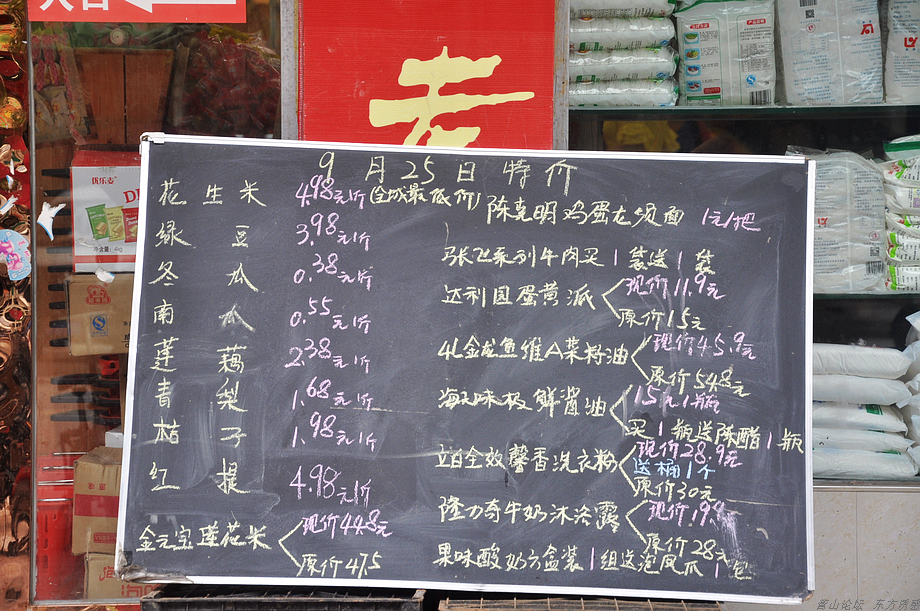 入口
老
优乐麦
9月25日特价
花生米 4.98元/斤(全城最低价)
绿豆 3.98元/斤
冬瓜 0.38元/斤
南瓜 0.55元/斤
莲藕 2.38元/斤
青梨 1.68元/斤
桔子 1.98元/斤
红提 4.98元/斤
金元宝莲花米
现价44.8元
原价47.5
陈克明鸡蛋龙须面 1元/把
张飞系列牛肉买1袋送1袋
达利园蛋黄派
现价11.9元
原价15元
4L金龙鱼维A菜籽油
现价45.9元
原价54.8元
海天味极鲜酱油
15元1瓶
买1瓶送陈醋1瓶
立白全效馨香洗衣粉
现价28.9元
送桶1个
原价30元
隆力奇牛奶沐浴露
现价19.9
原价28元
果味酸奶六盒装1组送泡凤爪1包
营山论坛